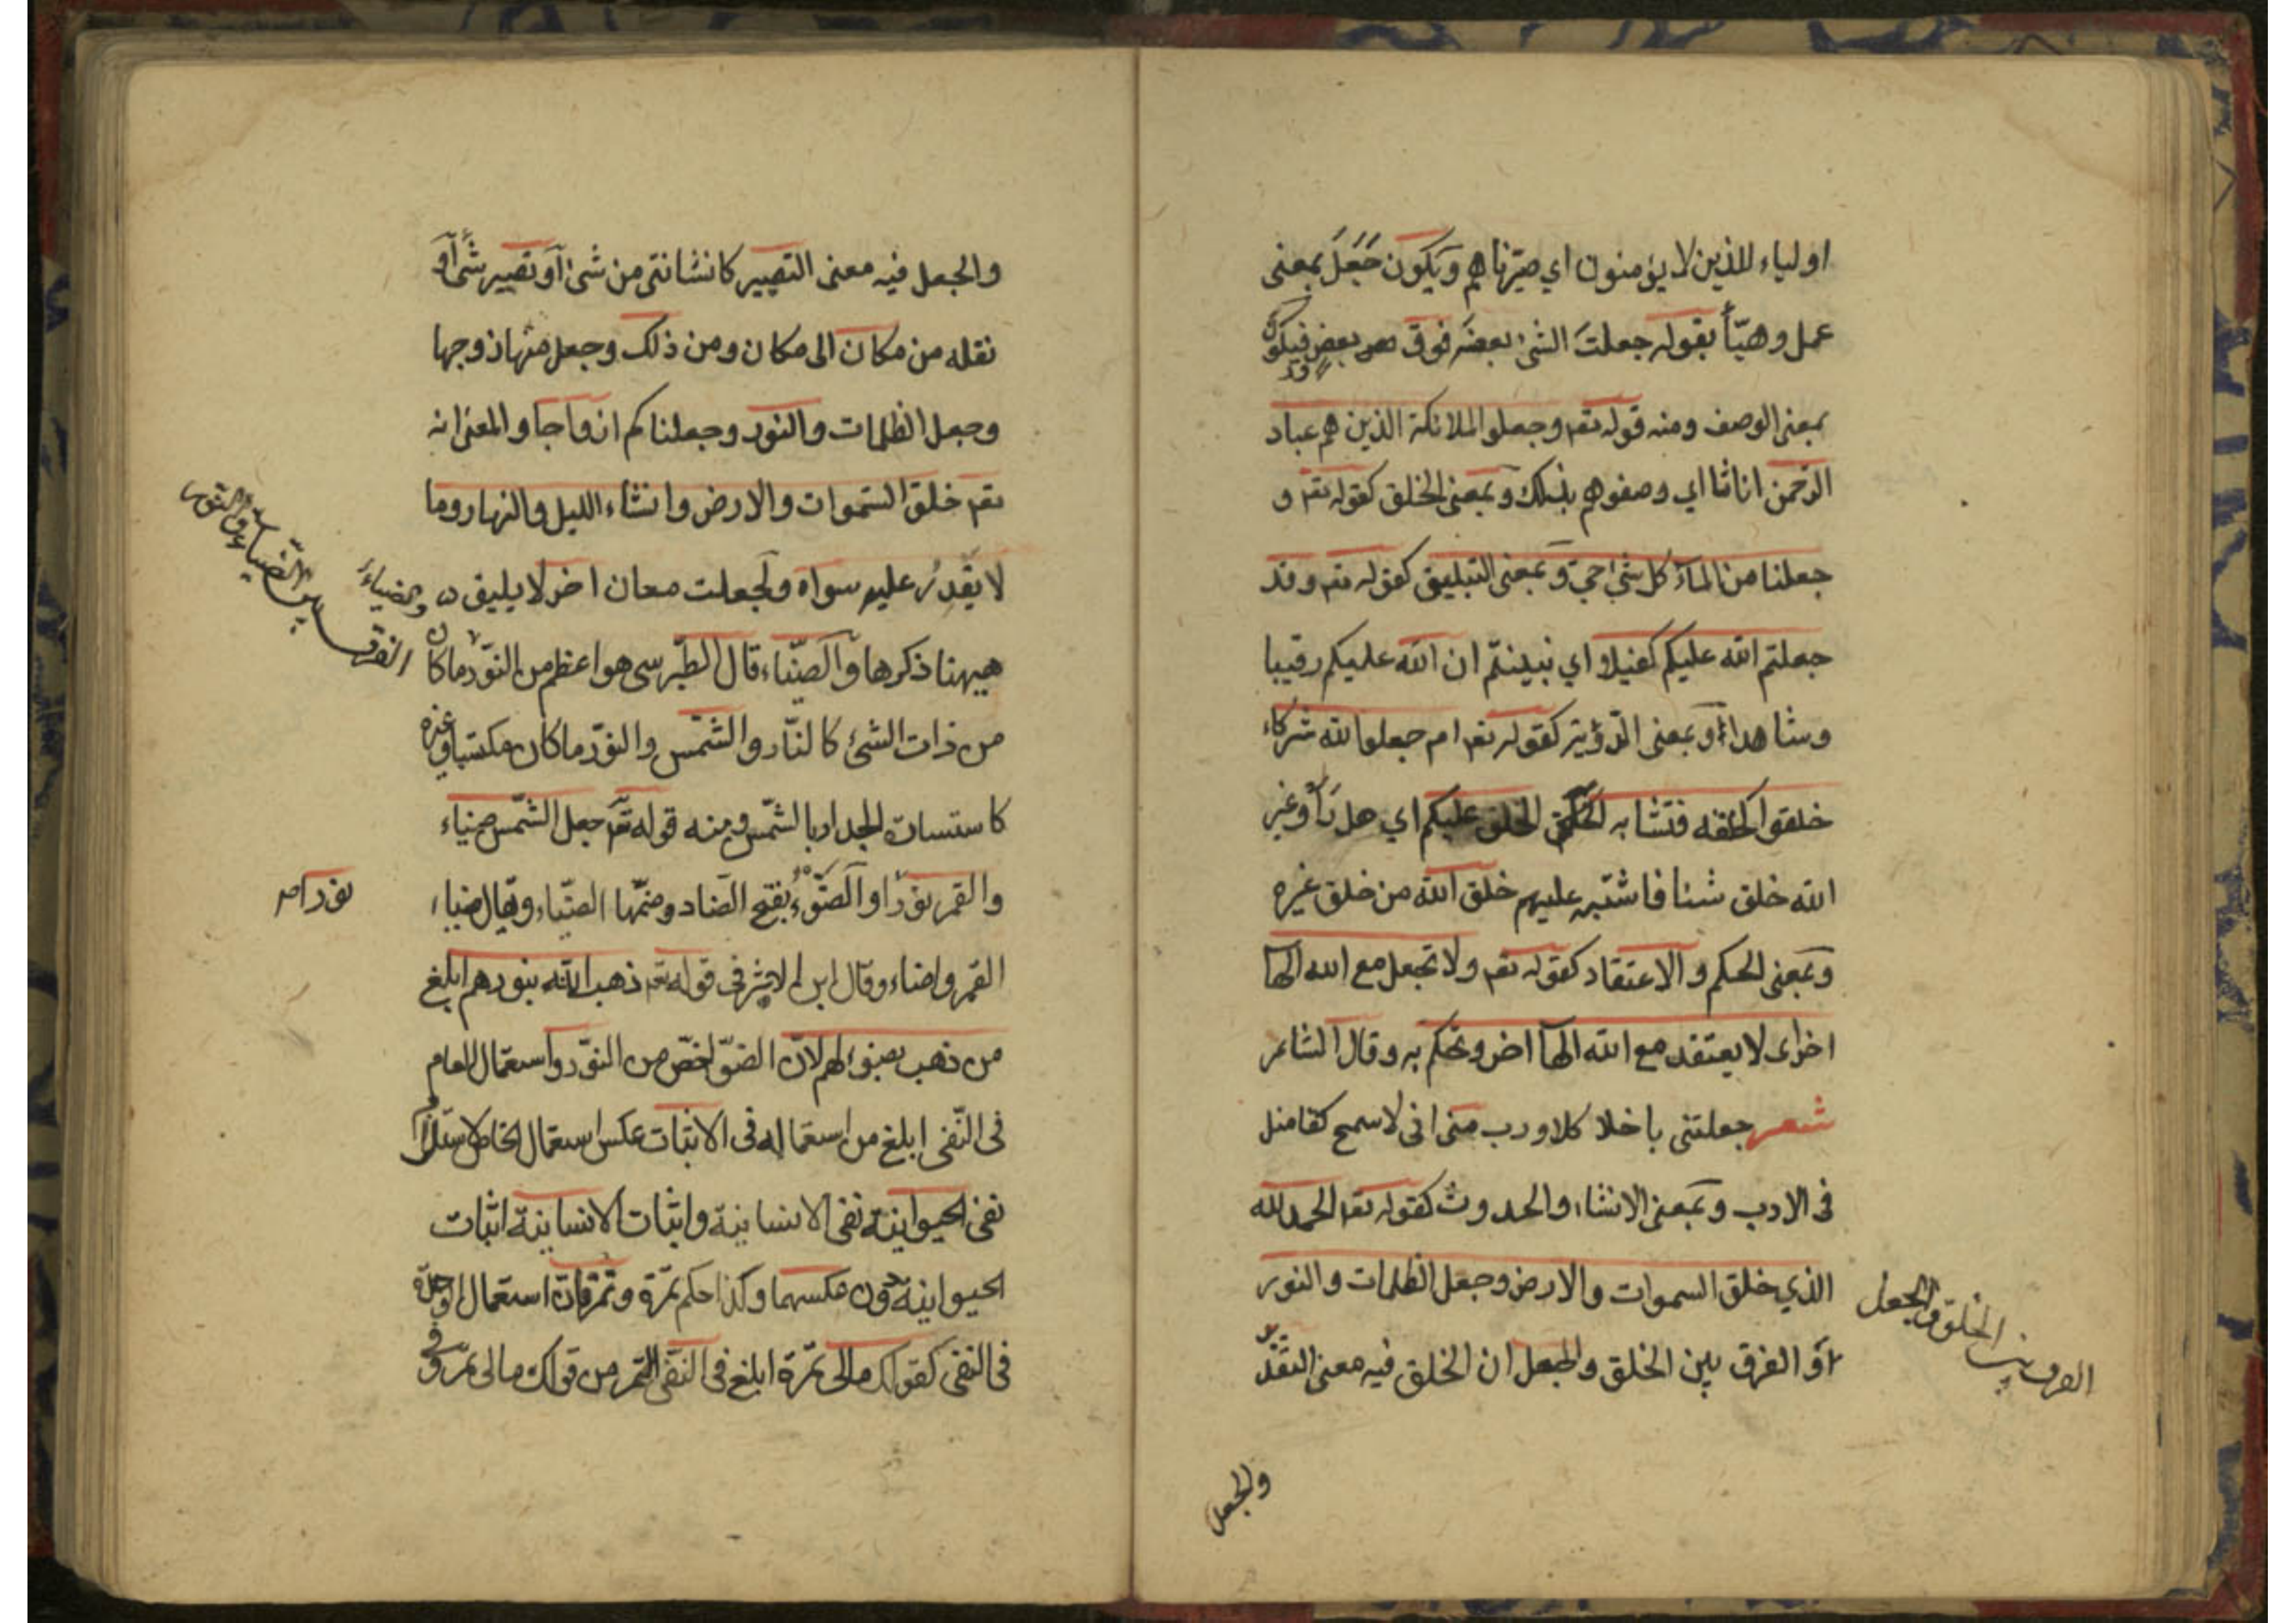 اولياء للذين لا يؤمنون اي صيّرناهم ويكون جَعَلَ بمعنى
عمل وهيّأ بقوله جعلت الشئ بعضه فوق بعض فيكون
وقد
بمعنى الوصف ومنه قوله تعم وجعلوا الملائكة الذين هم عباد
الرّحمن اناثا اي وصفوهم بذلك وبمعنى الخلق كقوله تعم و
جعلنا من الماء كل شئ احي وبمعنى التبليغ كقوله تعم وقد
جعلتم الله عليكم كفيلا اي نبينتم ان الله عليكم رقيبا
وشاهدا او بمعنى الرؤية كقوله تعم ام جعلوا لله شركاء
خلقوا كخلقه فتشابه الخلق عليكم اي هل رأو غير
الله خلق شئا فاشتبه عليهم خلق الله من خلق غيره
وبمعنى الحكم والاعتقاد كقوله تعم ولا تجعل مع الله الها
اخر اى لا يعتقد مع الله الها اخر وتحكم به وقال الشاعر
شعر جعلتنى باخلا كلا ورب منى انى لاسمح كفا منل
فى الادب وبمعنى الانشاء والحدوث كقوله تعم الحمد لله
الذي خلق السموات والارض وجعل الظلمات والنور
او الفرق بين الخلق والجعل ان الخلق فيه معنى التقدير
الفرق بين الخلق والجعل
والجعل
والجعل فيه معنى التصيير كانشانتى من شئ او تصيير شئ او
نقله من مكان الى مكان ومن ذلك وجعل منها زوجها
وجعل الظلمات والنور وجعلناكم ازواجا والمعنى انه
تعم خلق السّموات والارض وانشاء الليل والنهار وما
لا يقدر عليه سواه ولجعلت معان اخر لا يليق
والضياء
الفرق بين الضياء والنور
هيهنا ذكرها والضّياء قال الطّبرسى هو اعظم من النوّر ما كان
من ذات الشئ كالنّار والشمّس والنوّر ما كان مكتسبا من غيره
كاستسات الجدار بالشّمس ومنه قوله تعم جعل الشّمس ضياء
والقمر نوّرا والضّوّء بفتح الضاد وضمّها الضّياء ويقال ضاء
نور اص
القمر واضاء وقال ابن الاثير فى قوله تعم ذهب الله بنورهم ابلغ
من ذهب بضوئهم لانّ الضوّ اخصّ من النوّر واستعمال العام
فى النّفى ابلغ من استعماله فى الاثبات عكس استعمال الخاص
نفى الحيوانية نفى الانسانية واثبات الانسانية اثبات
الحيوانية دون عكسهما وكذا حكم تمّرة وتمرقات استعمال الوحدة
فى النفى كقولك مالى تمّرة ابلغ فى النّفى التمر من قولك مالى تمّر وفى